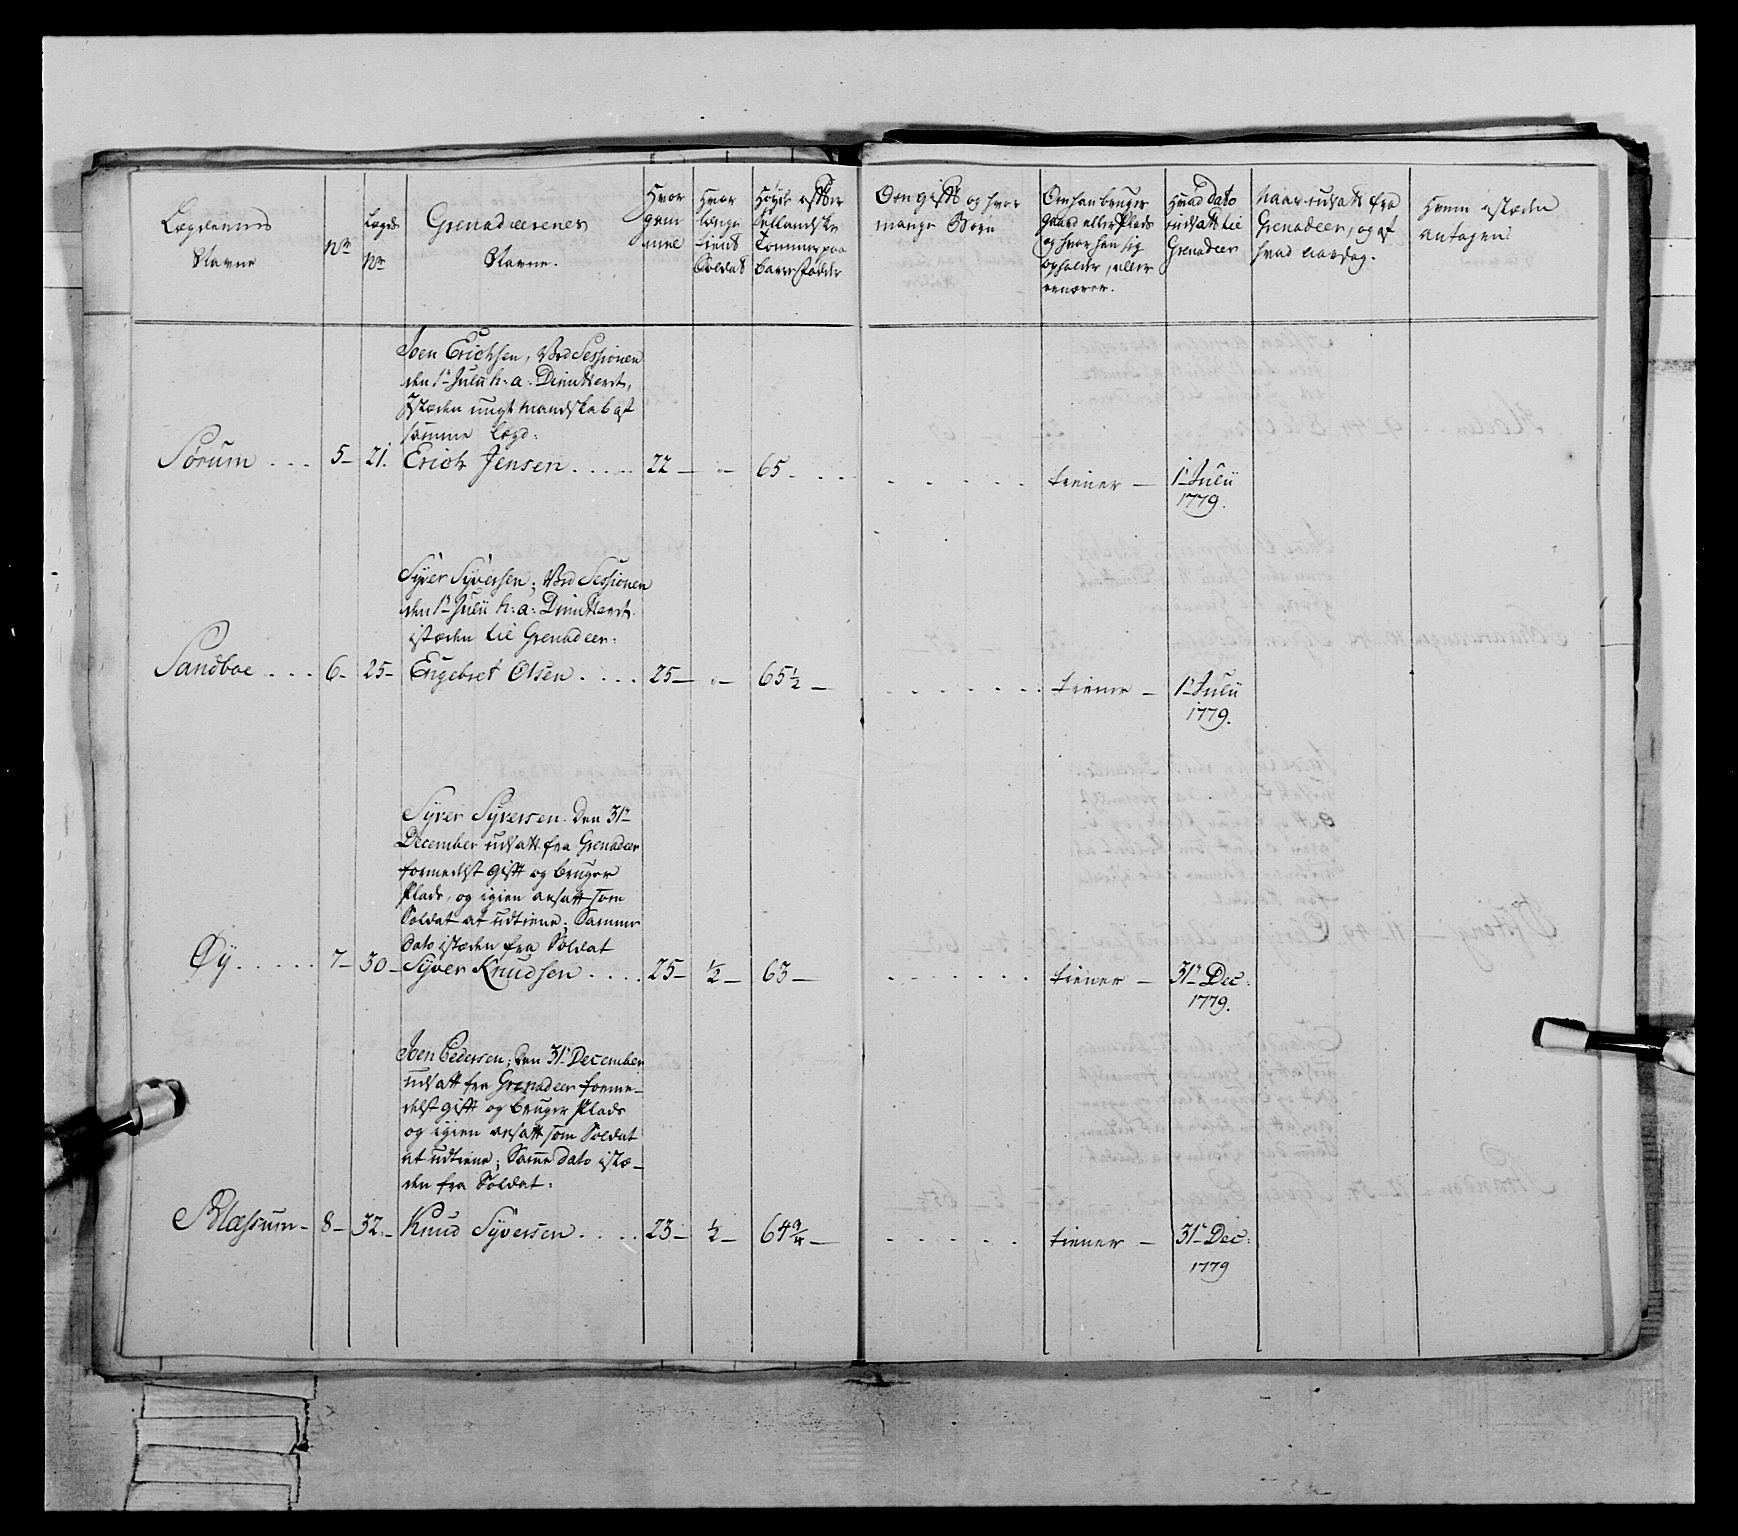 Lægdernes
Navne
No
Lægds
No
Grenadeerenes
Navne.
Hvor
gam
mel
Hvor
længe
tient
Soldat
Høyde efter
Sellandske
Tommer paa
bare Fødder
Om gift og hvor
mange Børn
Om han bruger
Gaard eller Plads
og hvor han sig
opholder, eller
ernærer.
Hvad dato
udsatt til
Grenadeer
Naar udsatt fra
Grenadeer, og af
hvad aarsag.
Hvem isteden
antagen?
Joen Erichsen, Ved Sessionen
den 1te Julii h: a: Dimitteret,
Isteden ungt mandskab af
samme Legd:
Sørum . . . 5 – 21. Erich Jensen . . . . . 22 – „ – 65 – . . . . . . . . . tiener – 1te Julii
1779.
Syver Syversen; Ved Sessionen
den 1te Julii h: a: Dimitteret
isteden til Grenadeer:
Sandboe . . . 6 – 25 – Engebret Olsen . . . . 25 – „ – 65 1/2 – . . . . . . . tiener – 1te Julii
1779.
Syver Syversen. Den 31te
December udsatt fra Grenadeer
formedelst gift og bruger
Plads, og igien ansatt som
Soldat at udtiene; Samme
dato isteden fra Soldat
Øy . . . . . 7 – 30 – Syver Knudsen . . . . 25 – 1/2 – 63 – . . . . . . . tiener – 31te Dec:
1779.
Joen Pedersen; Den 31te December
udsatt fra Grenadeer forme–
delst gift og bruger Plads
og igien ansatt som Soldat
at udtiene; Samme dato iste–
den fra Soldat:
Blæssum – 8 – 32 – Knud Syversen . . . . 23 – 1/2 – 64 3/4 – . . . . . . tiener – 31te Dec:
1779